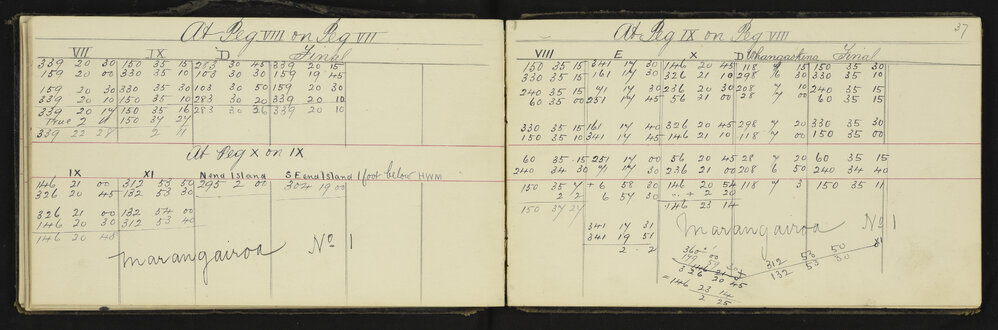 At Peg VIII on Peg VII
VII IX D Final
339 20 30 150 35 15 283 30 45 339 20 15
159 20 00 330 35 10 103 30 30 159 19 45
159 20 30 330 35 30 103 30 50 159 20 30
339 20 10 150 35 10 283 30 20 339 20 10
339 20 17 150 35 16 283 30 26 339 20 10
True 2 11 150 37 27
339 22 28 2 11
At Peg X on IX
IX XI N end Island SE end Island 1 foot below HWM
146 21 00 312 53 50 295 2 00 304 19 00
326 20 45 132 53 30
326 21 00 132 54 00
146 20 30 312 53 40
146 20 48
Marangairoa No 1
37
At Peg IX on Peg VIII
VIII E X D Whangaokina Final
150 35 15 341 17 30 146 20 45 118 7 15 150 35 30
330 35 15 161 17 30 326 21 10 298 6 30 330 35 10
240 35 15 71 17 30 236 20 30 208 7 10 240 35 15
60 35 00 251 17 45 56 21 00 28 7 10 60 35 15
330 35 15 161 17 40 326 20 45 298 7 20 330 35 30
150 35 10 341 17 45 146 21 10 118 7 00 150 35 00
60 35 15 251 17 00 56 20 45 28 7 20 60 35 15
240 34 30 71 17 30 236 21 00 208 6 50 240 34 40
150 35 7 + 6 58 30 146 20 54 118 7 3 150 35 11
2 2 6 54 30 + 2 20
150 37 27 146 23 14
341 17 31
341 19 51
2 . 2
Marangairoa No 1
326 20 45
146 23 14
2 25
312 53 50 XI
132 53 30